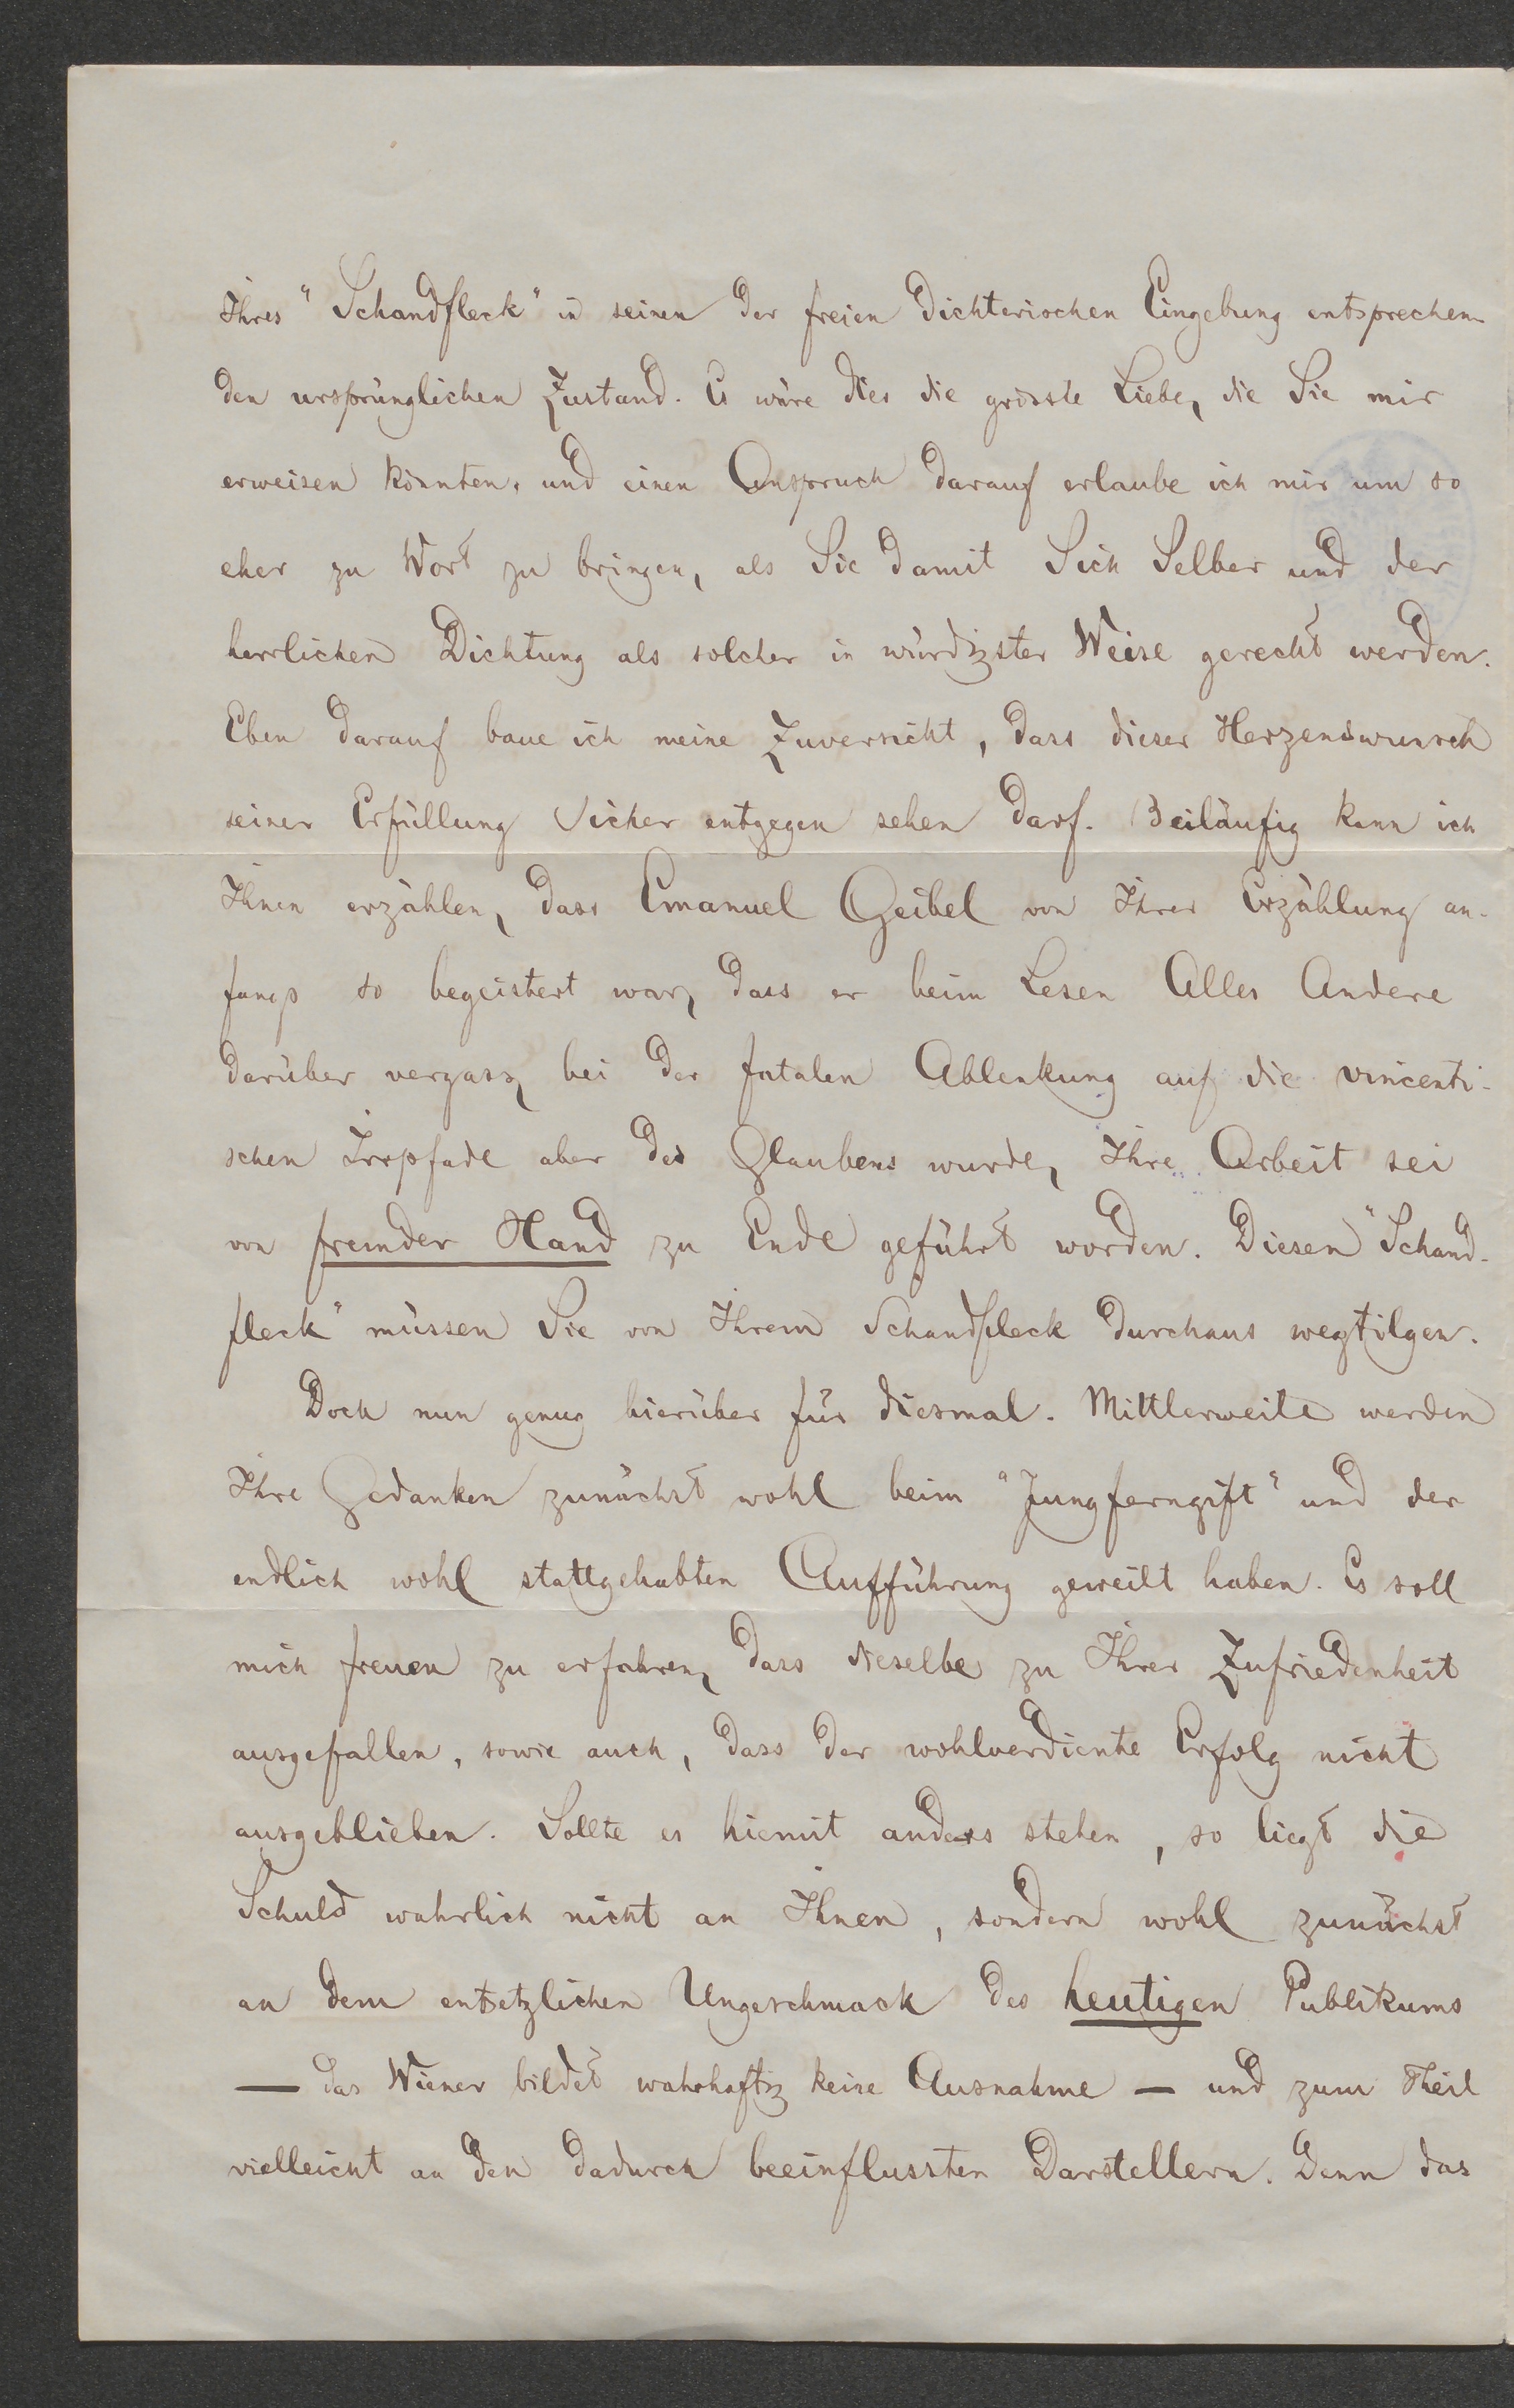 Ihres "Schandfleck" in seinen der freien dichterischen Eingebung entsprechen-
den ursprünglichen Zustand. Es wäre dies die grösste Liebe, die Sie mir
erweisen könnten, und einen Anspruch darauf erlaube ich mir um so
eher zu Wort zu bringen, als Sie damit Sich Selber und der
herrlichen Dichtung als solcher in würdigster Weise gerecht werden.
Eben darauf baue ich meine Zuversicht, dass dieser Herzenswunsch
seiner Erfüllung sicher entgegen sehen darf. Beiläufig kann ich
Ihnen erzählen, dass Emanuel Geibel von Ihrer Erzählung an-
fangs so begeistert war, dass er beim Lesen Alles Andere
darüber vergass, bei der fatalen Ablenkung auf die vincenti-
schen Irrpfade aber des Glaubens wurde, Ihre Arbeit sei
von fremder Hand zu Ende geführt worden. Diesen "Schand-
fleck" müssen Sie von Ihrem Schandfleck durchaus wegtilgen.
Doch nun genug hierüber für diesmal. Mittlerweile werden
Ihre Gedanken zunächst wohl beim "Jungferngift" und der
endlich wohl stattgehabten Aufführung geweilt haben. Es soll
mich freuen zu erfahren, dass dieselbe zu Ihrer Zufriedenheit
ausgefallen, sowie auch, dass der wohlverdiente Erfolg nicht
ausgeblieben. Sollte es hiemit anders stehen, so liegt die
Schuld wahrlich nicht an Ihnen, sondern wohl zunächst
an dem entsetzlichen Ungeschmack des heutigen Publikums
— das Wiener bildet wahrhaftig keine Ausnahme — und zum Theil
vielleicht an den dadurch beeinflussten Darstellern. Denn das